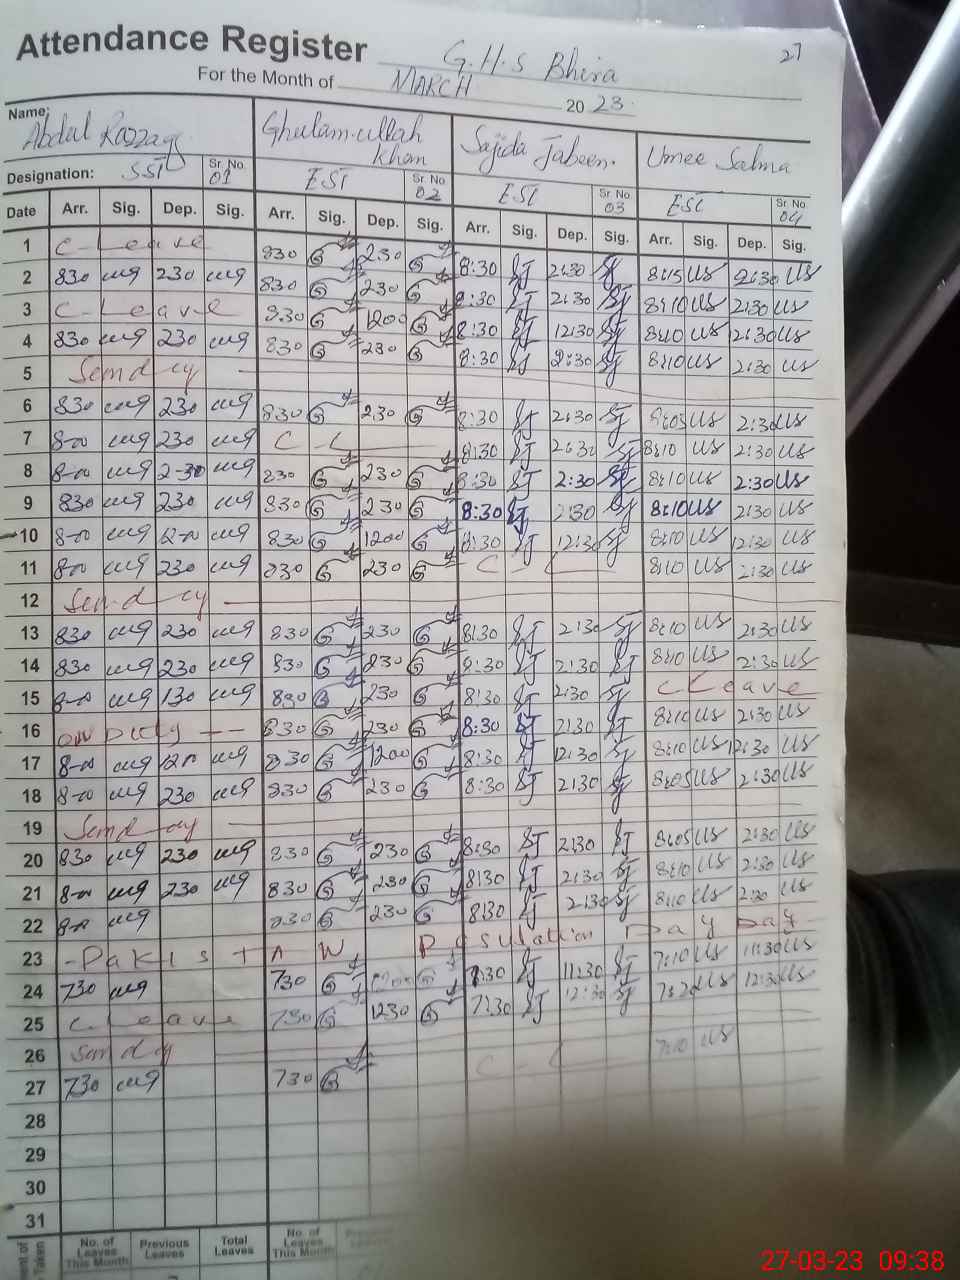 Attendance Register G.H.S Bhira 27
For the Month of MARCH 2023
Name: Abdul Razzaq Ghulam.ullah Khan Sajida Jabeen. Umee Salma
Designation: SST Sr. No. 01 EST Sr. No 02 EST Sr. No 03 EST Sr. No. 04
Date Arr. Sig. Dep. Sig. Arr. Sig. Dep. Sig. Arr. Sig. Dep. Sig. Arr. Sig. Dep. Sig.
1 C-Leave 830 230 8:30 SJ 2:30 SJ 8:15 US 2:30 US
2 830 230 830 230 8:30 SJ 2:30 SJ 8:10 US 2:30 US
3 C-Leave 830 1200 8:30 SJ 12:30 SJ 8:10 US 12:30 US
4 830 230 830 230 8:30 SJ 2:30 SJ 8:10 US 2:30 US
5 Sunday
6 830 230 830 230 8:30 SJ 2:30 SJ 8:05 US 2:30 US
7 8-00 230 C L 8:30 SJ 2:30 SJ 8:10 US 2:30 US
8 8-00 2-30 830 230 8:30 SJ 2:30 SJ 8:10 US 2:30 US
9 830 230 830 230 8:30 SJ 2:30 SJ 8:10 US 2:30 US
10 8-00 12-00 830 1200 8:30 SJ 12:30 SJ 8:10 US 12:30 US
11 8-00 230 830 230 C-L 8:10 US 2:30 US
12 Sunday
13 830 230 830 230 8:30 SJ 2:30 SJ 8:10 US 2:30 US
14 830 230 830 230 8:30 SJ 2:30 SJ 8:10 US 2:30 US
15 8-00 130 830 230 8:30 SJ 2:30 SJ C Leave
16 on Duty -- 830 230 8:30 SJ 2:30 SJ 8:10 US 2:30 US
17 8-00 1200 830 1200 8:30 SJ 12:30 SJ 8:10 US 12:30 US
18 8-00 230 830 230 8:30 SJ 2:30 SJ 8:05 US 2:30 US
19 Sunday
20 830 230 830 230 8:30 SJ 2:30 SJ 8:05 US 2:30 US
21 8-00 230 830 230 8:30 SJ 2:30 SJ 8:10 US 2:30 US
22 8-00 830 230 8:30 SJ 2:30 SJ 8:10 US 2:30 US
23 -Pakistan Day Day
24 730 730 7:30 SJ 11:30 SJ 7:10 US 11:30 US
25 C.Leave 730 1230 7:30 SJ 12:30 SJ 7:20 US 12:30 US
26 Sunday
27 730 730 C-L 7:10 US
28
29
30
31
No. of Leaves This Month Previous Leaves Total Leaves No. of Leaves This Month
Taken
27-03-23 09:38